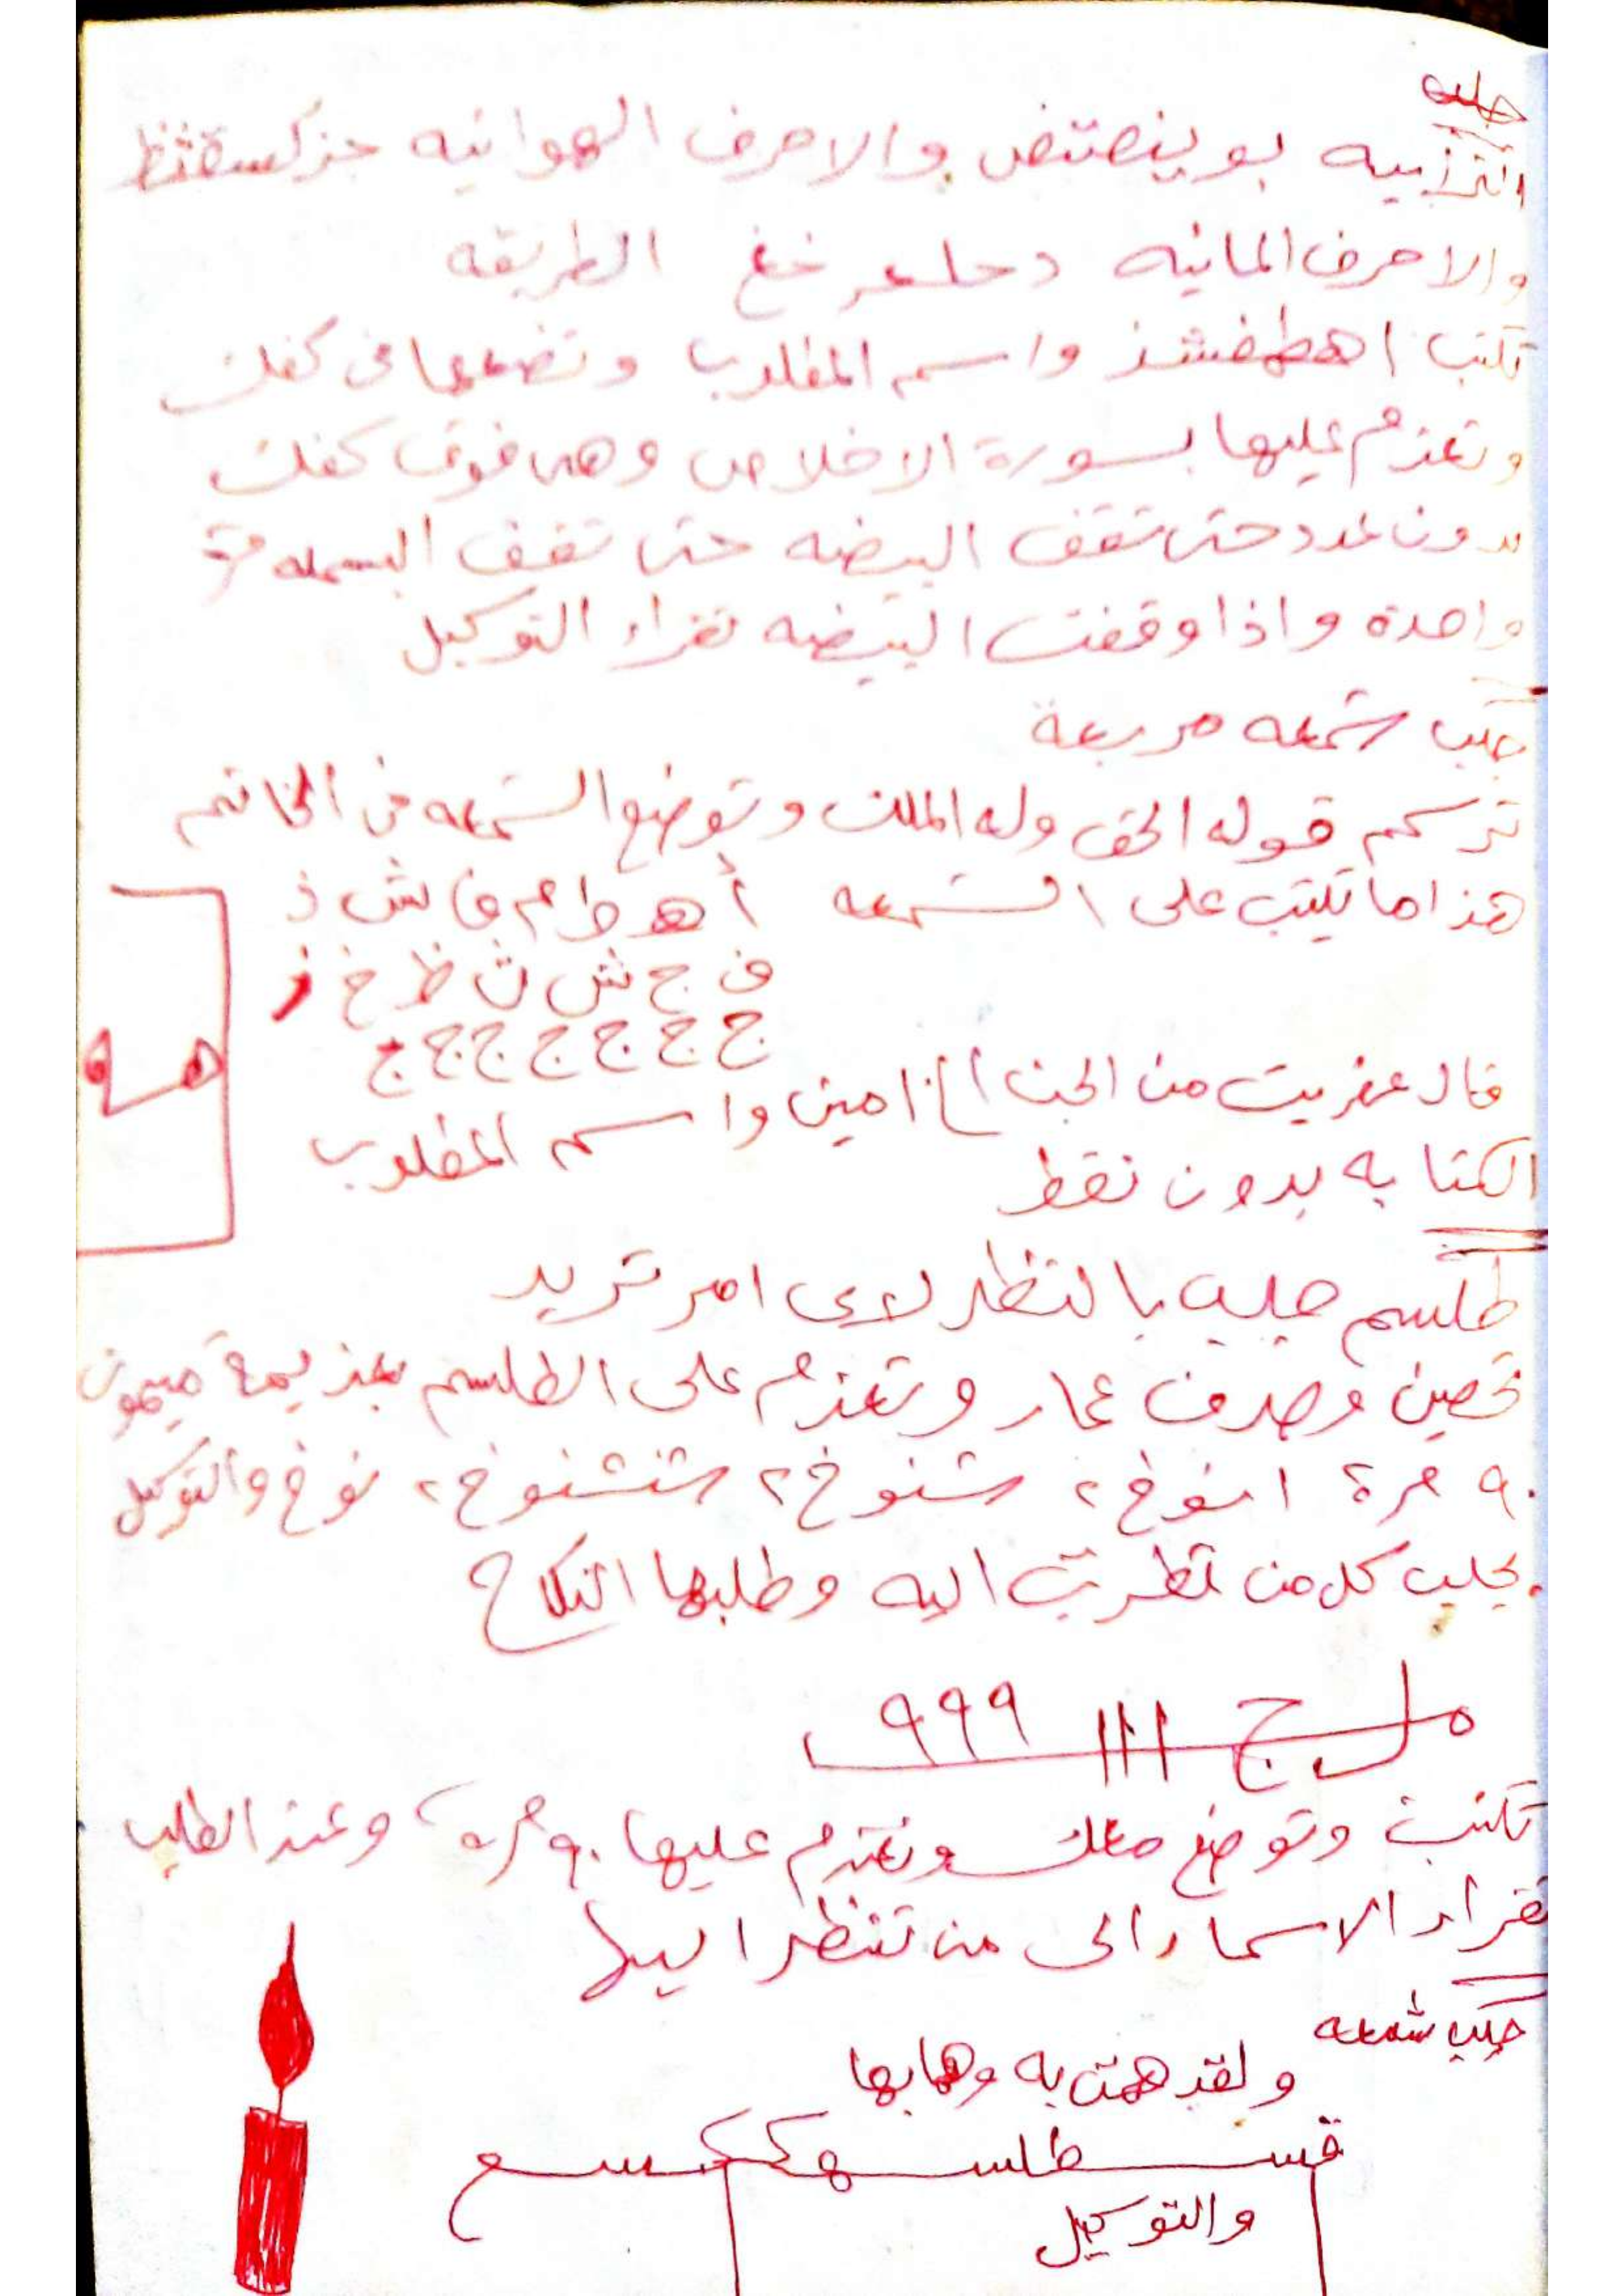 جلب
الترابيه بوينصتض والاحرف الهوائيه جزكسقثظ
والاحرف المائيه دحلعر خغ الطريقه
تكتب اهطمفشذ واسم المطلوب وتضعها في كفك
وتعزم عليها بسورة الاخلاص وهى فوق كفك
بدون عدد حتى تقف البيضه حتى تقف البسمله مرة
واحدة واذا وقفت البيضه تقراء التوكيل
جلب شمعه مربعة
ترسم قوله الحق وله الملك وتوضع الشمعه في الخاتم
هذا ما تكتب على الشمعه أ هـ ط م ف ش ذ
ف ج ش ث ظ خ ز
ج ج ج ج ج ج ج
هـ و
قال عفريت من الجن الخ امين واسم المطلوب
الكتابه بدون نقط
طلسم جلب بالنظر لاى امر تريد
تحصين وصرف عمار وتعزم على الطلسم بعزيمة ميمون
٩٠ مرة انوخ ٢ شنوخ ٢ شنشنوخ ٢ نوخ والتوكيل
يجلب كل من نظرت اليه وطلبها النكاح
ج ااا ٩٩٩
تكتب وتوضع معك وتعزم عليها ٩٠ مرة وعند الطلب
تقراء الاسماء الى من تنظر اليها
جلب شمعه
ولقد همت به وهم بها
والتوكيل